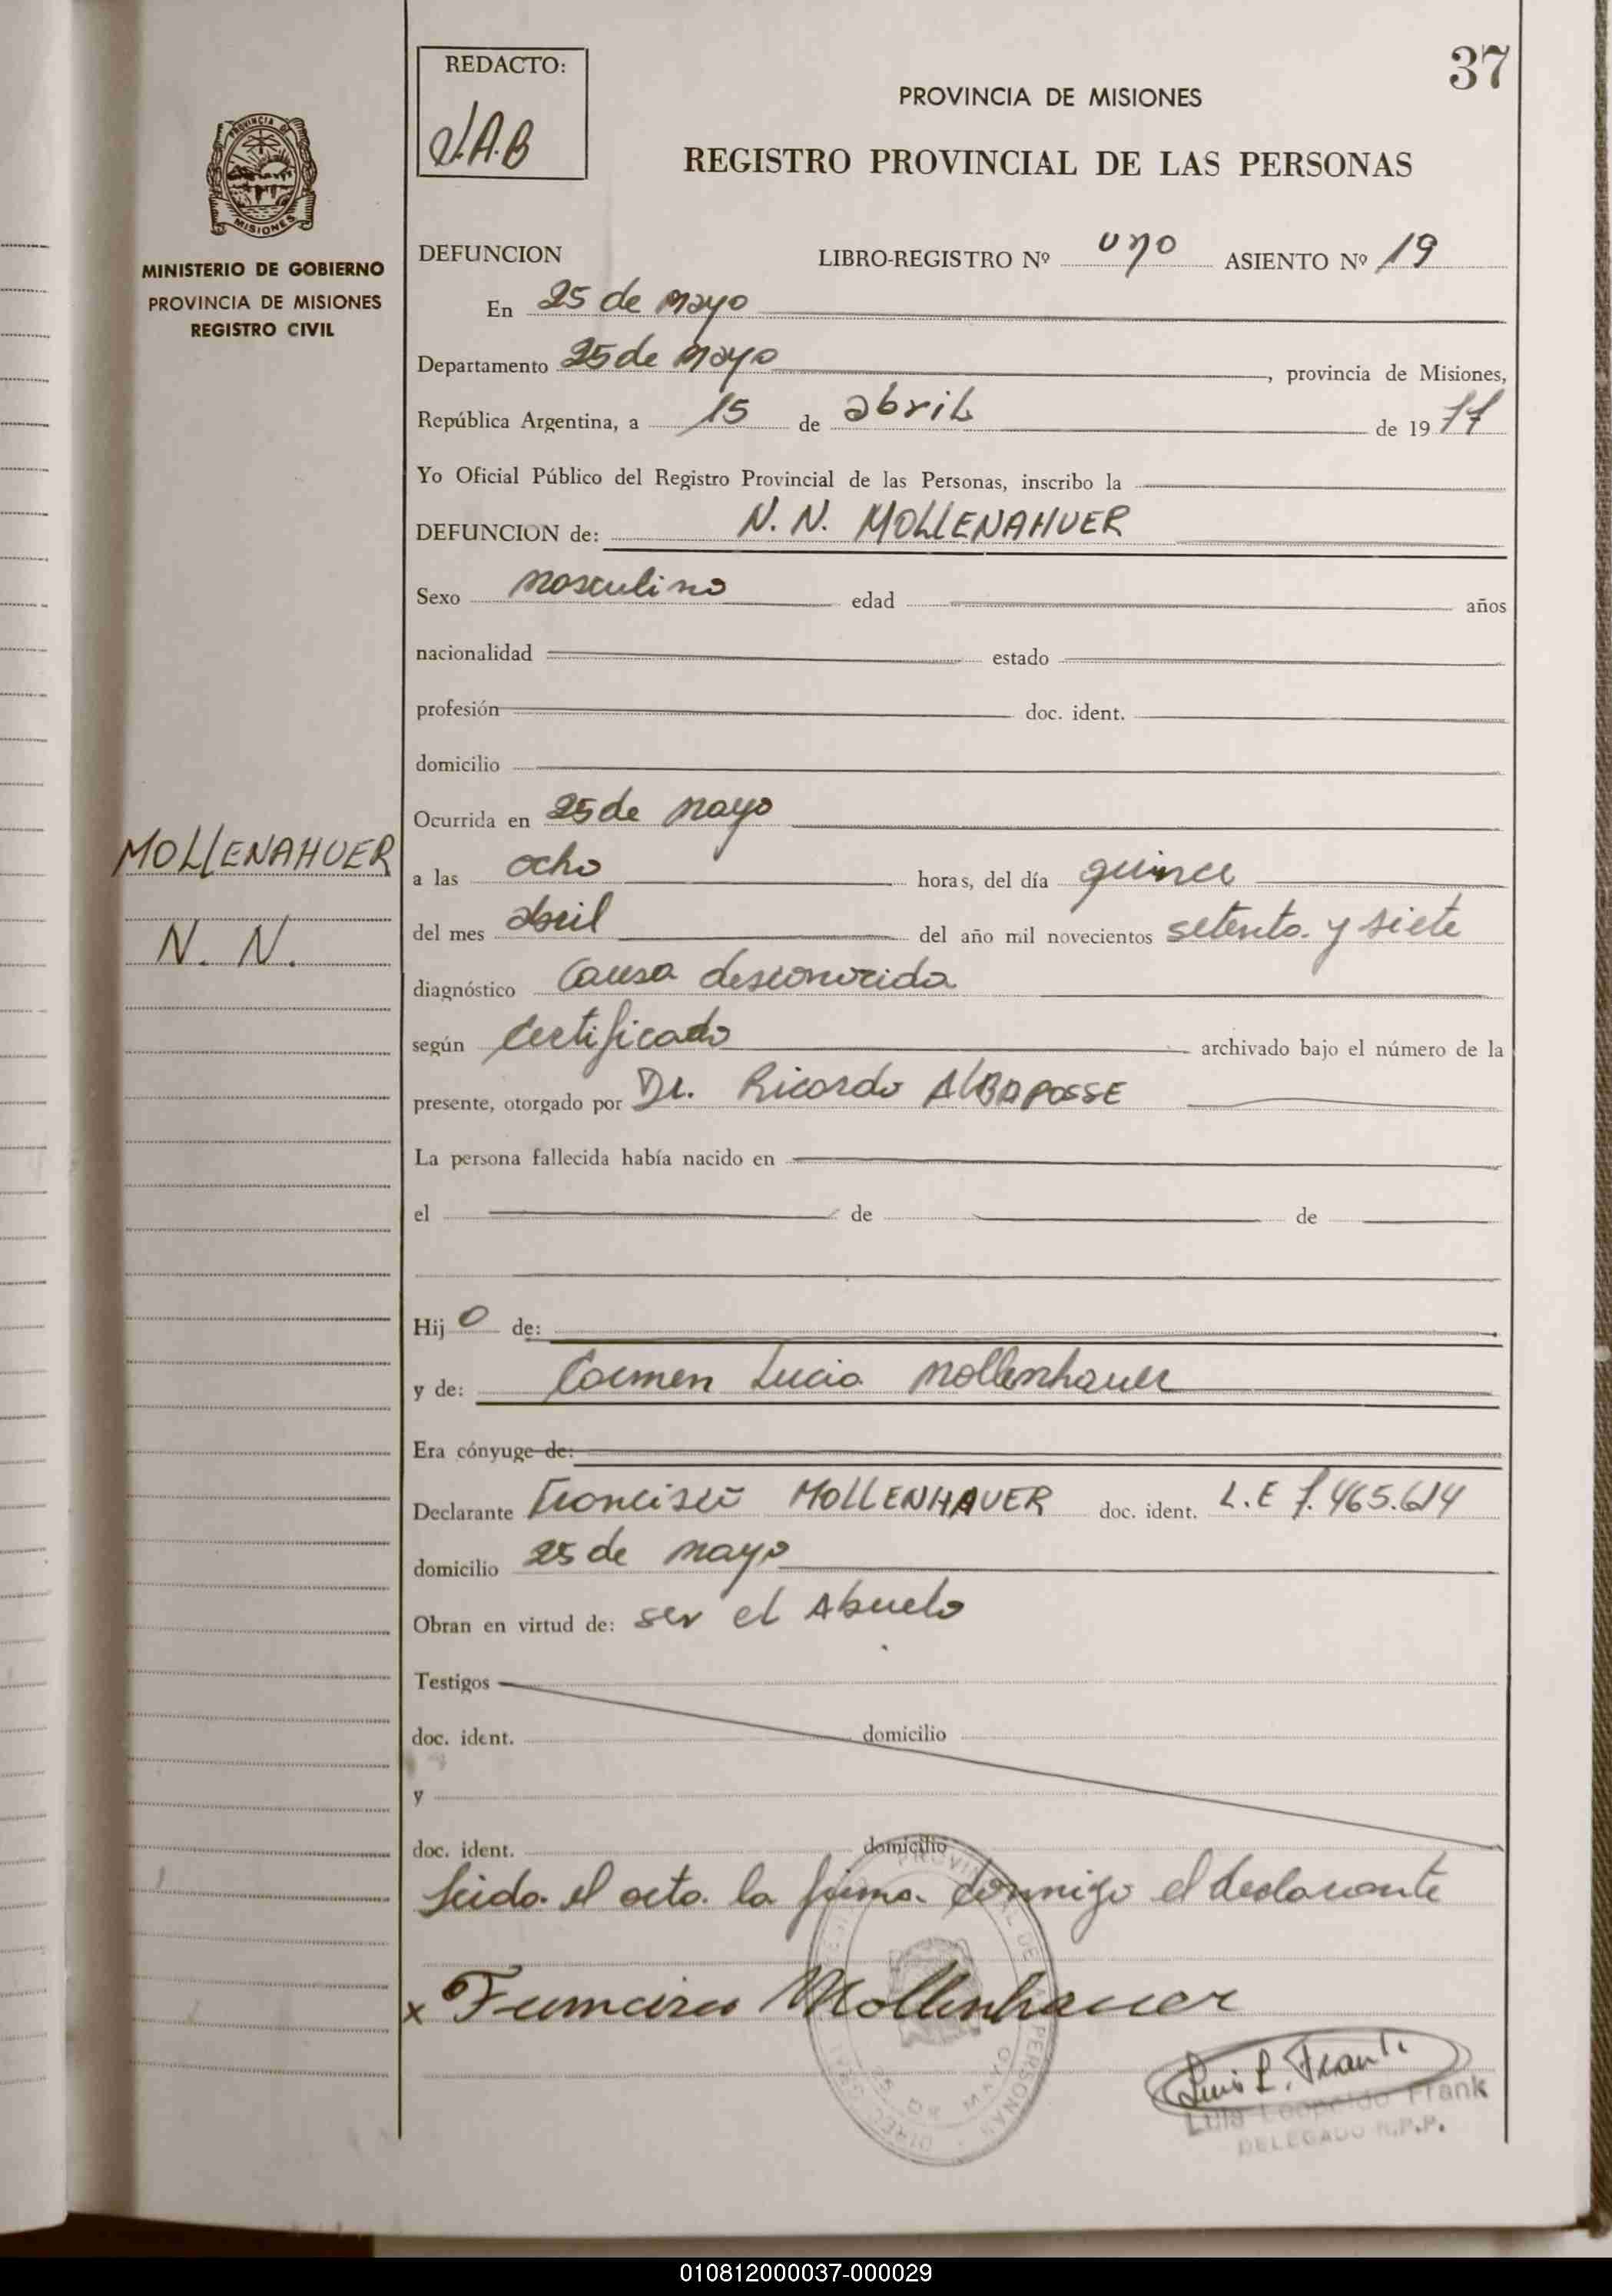 37
REDACTO:
J.A.B
PROVINCIA DE MISIONES
REGISTRO PROVINCIAL DE LAS PERSONAS
PROVINCIA DE
MISIONES
MINISTERIO DE GOBIERNO
PROVINCIA DE MISIONES
REGISTRO CIVIL
DEFUNCION LIBRO-REGISTRO Nº uno ASIENTO Nº 19
En 25 de mayo
Departamento 25 de mayo, provincia de Misiones,
República Argentina, a 15 de abril de 1977
Yo Oficial Público del Registro Provincial de las Personas, inscribo la
DEFUNCION de: N. N. MOLLENAHUER
Sexo masculino edad años
nacionalidad estado
profesión doc. ident.
domicilio
Ocurrida en 25 de mayo
MOLLENAHUER
N. N.
a las ocho horas, del día quince
del mes abril del año mil novecientos setenta y siete
diagnóstico Causa desconocida
según Certificado archivado bajo el número de la
presente, otorgado por Dr. Ricardo
La persona fallecida había nacido en
el de de
Hijo de:
y de: Carmen Lucia Mollenhauer
Era cónyuge de:
Declarante Francisco MOLLENHAUER doc. ident. L.E 7.465.614
domicilio 25 de mayo
Obran en virtud de: ser el Abuelo
Testigos
doc. ident. domicilio
y
doc. ident. domicilio
Leida el acta la firma conmigo el declarante
x Francisco Mollenhauer
25 DE MAYO
Luis L. Frank
Luis Leopoldo Frank
DELEGADO R.P.P.
010812000037-000029